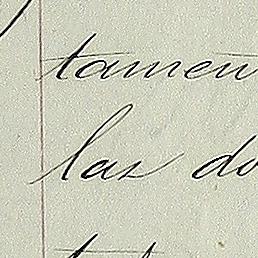 tamen
las do